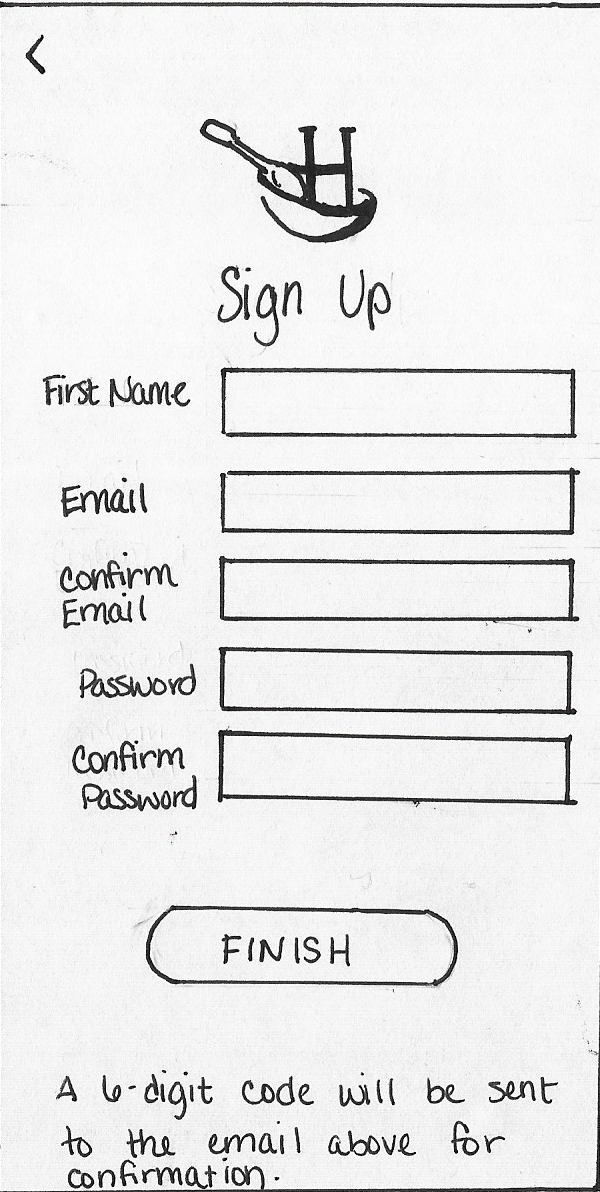 <
H
Sign Up
First Name
Email
Confirm
Email
Password
Confirm
Password
FINISH
A 6-digit code will be sent
to the email above for
confirmation.